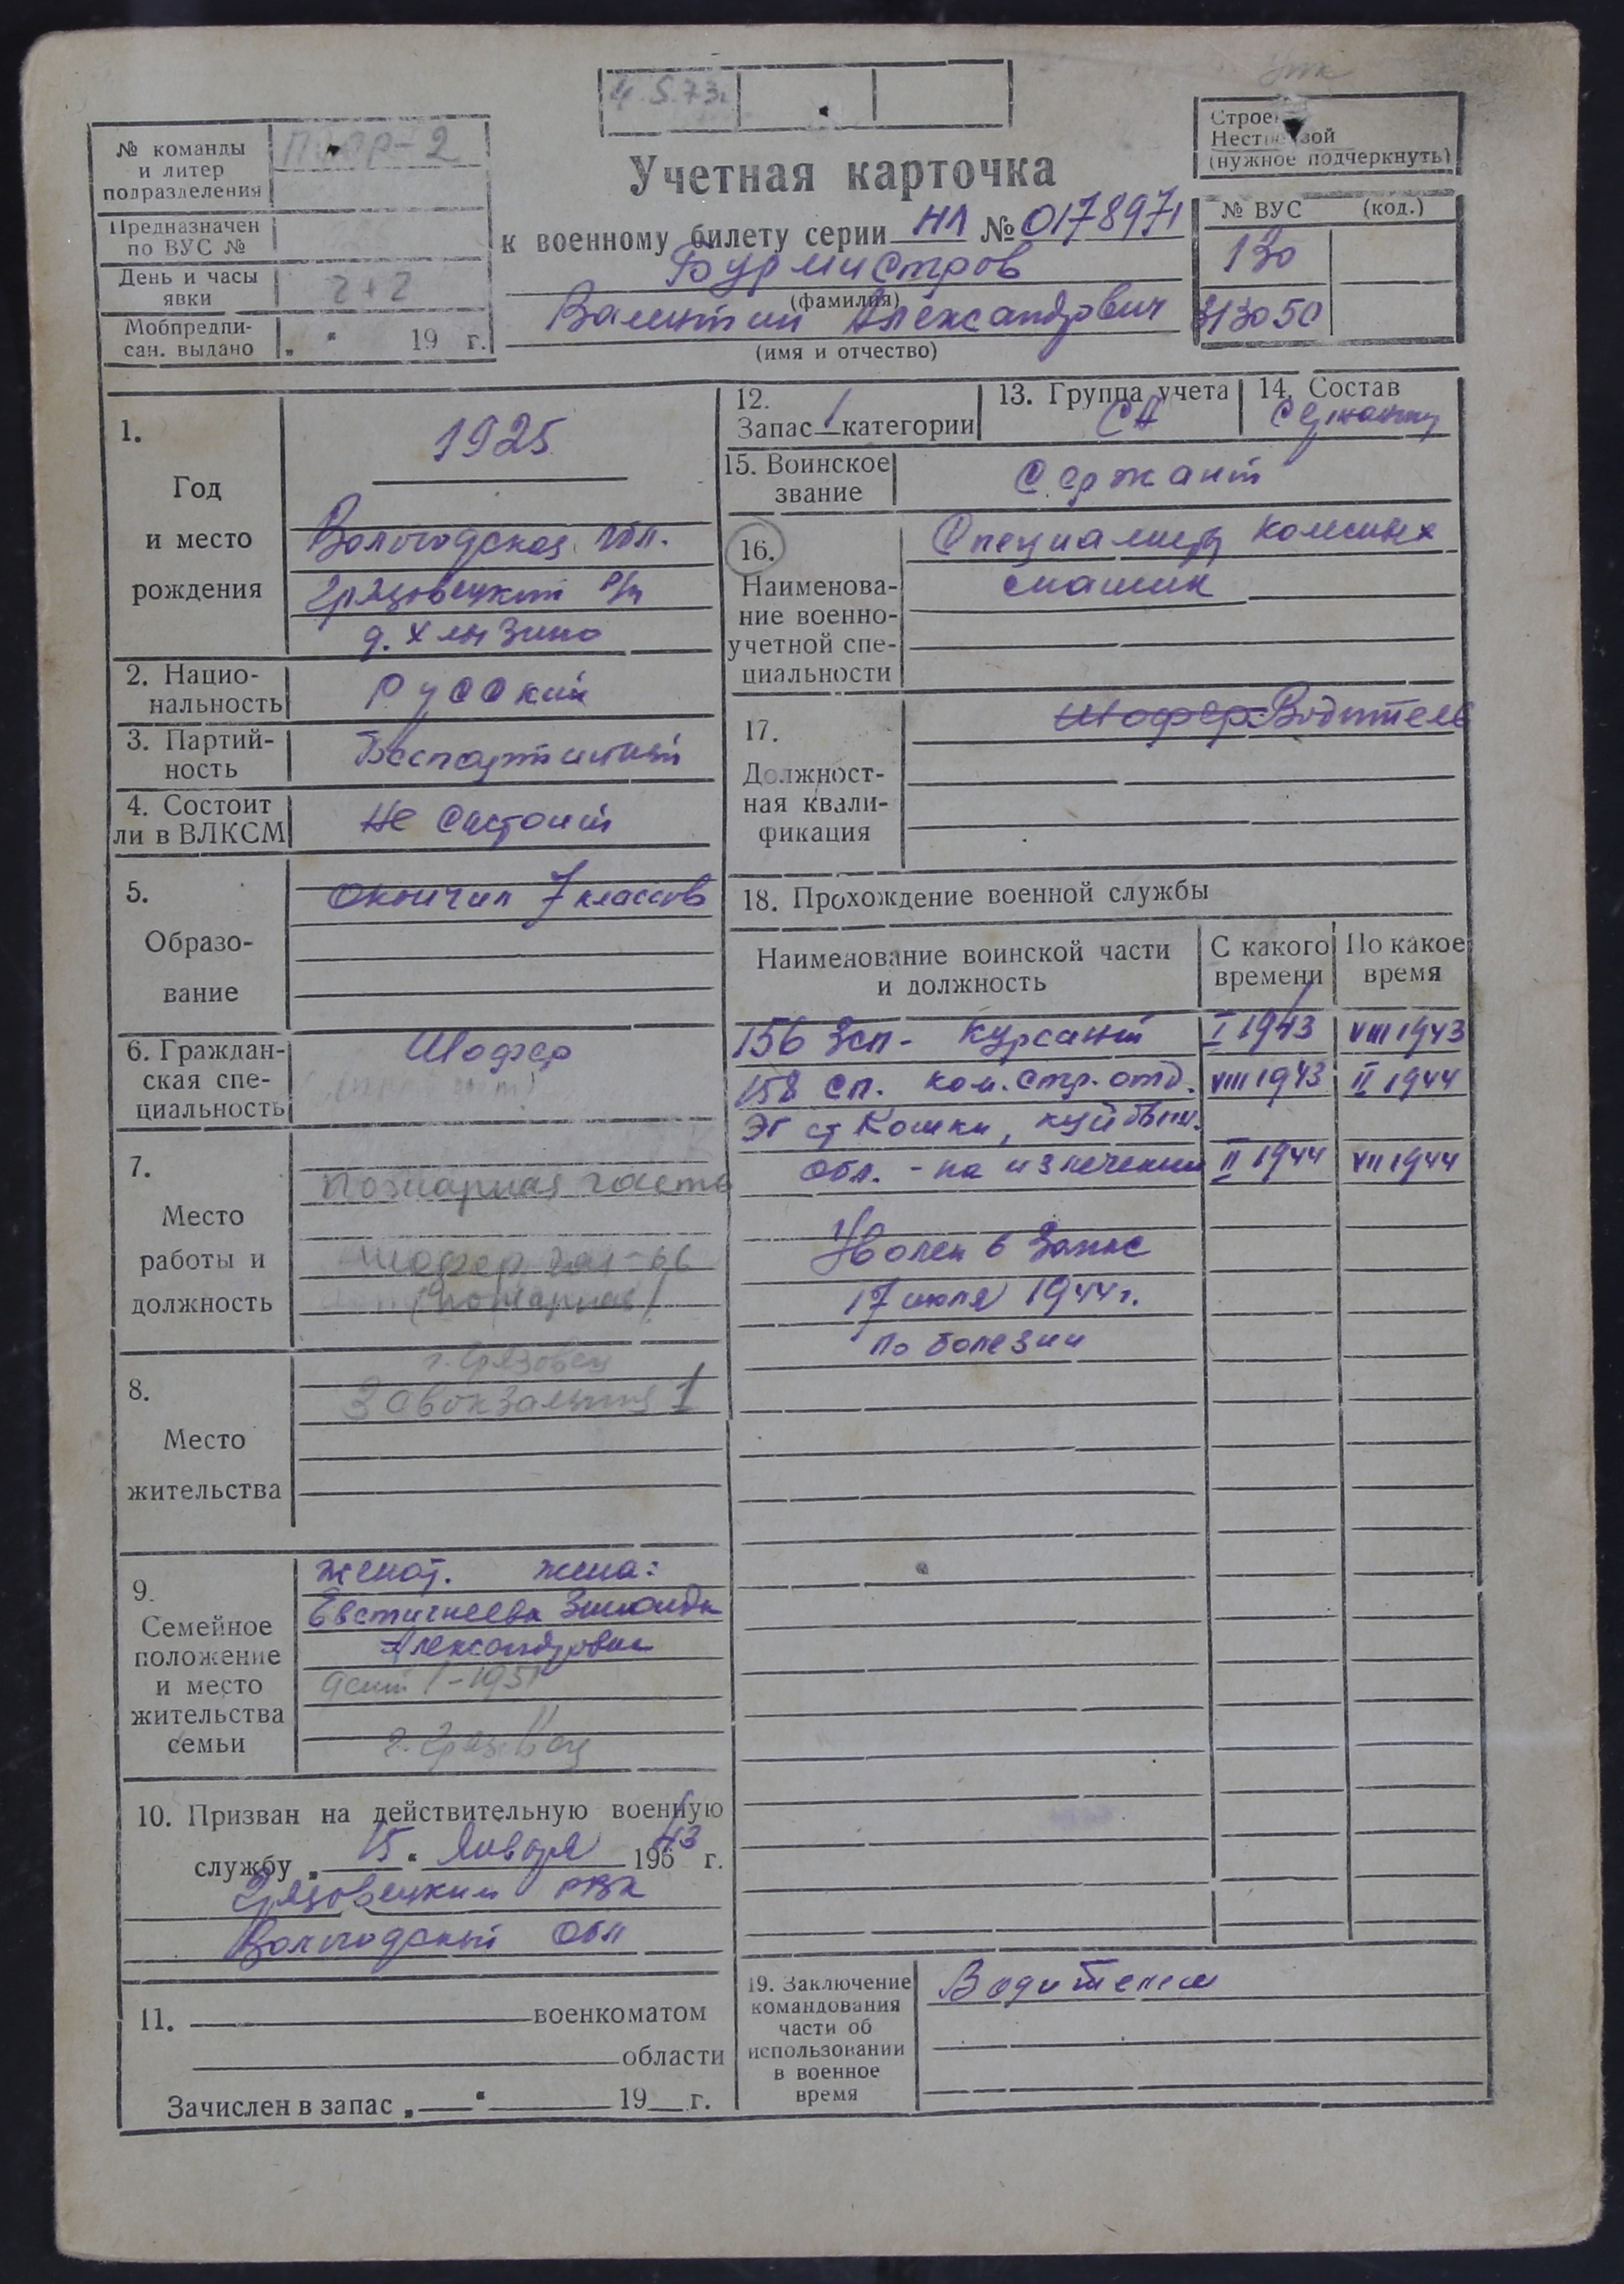 4.5.73г.
№ команды
и литер
подразделения
Предназначен
по ВУС №
День и часы
явки
2+2
Мобпредпи-
сан. выдано „ “ 19 г.
Учетная карточка
к военному билету серии НЛ № 0178971
Бурмистров
(фамилия)
Валентин Александрович
(имя и отчество)
(нужное подчеркнуть)
№ ВУС (код.)
130
313050
1.
Год
и место
рождения
1925
Вологодская обл.
Грязовецкий р/н
д. Хлызино
2. Нацио-
нальность
Русский
3. Партий-
ность
Беспартийный
4. Состоит
ли в ВЛКСМ
Не состоит
5.
Образо-
вание
Окончил 7 классов
6. Граждан-
ская спе-
циальность
Шофер
7.
Место
работы и
должность
Пожарная часть
шофер газ-66
(пожарная)
8.
Место
жительства
г. Грязовец
Завокзальная 1
9.
Семейное
положение
и место
жительства
семьи
женат. жена:
Евстигнеева Зинаида
Александровна
дети 1-1951
г. Грязовец
10. Призван на действительную военную
службу „ 15 “ января 19643 г.
Грязовецким РВК
Вологодской обл
11. военкоматом
области
Зачислен в запас „ “ 19 г.
12.
Запас 1 категории
13. Группа учета
СА
14. Состав
Сержанты
15. Воинское
звание
Сержант
16.
Наименова-
ние военно-
учетной спе-
циальности
17.
Должност-
ная квали-
фикация
Шофер Водитель
18. Прохождение военной службы
Наименование воинской части
и должность
С какого
времени
По какое
время
156 Зсп - Курсант I 1943 VIII 1943
158 сп. ком. стр. отд. VIII 1943 II 1944
ЭГ ст Кошки, Куйбыш.
обл. - на излечении II 1944 VII 1944
Уволен в запас
17 июля 1944 г.
по болезни
19. Заключение
командования
части об
использовании
в военное
время
Водителем